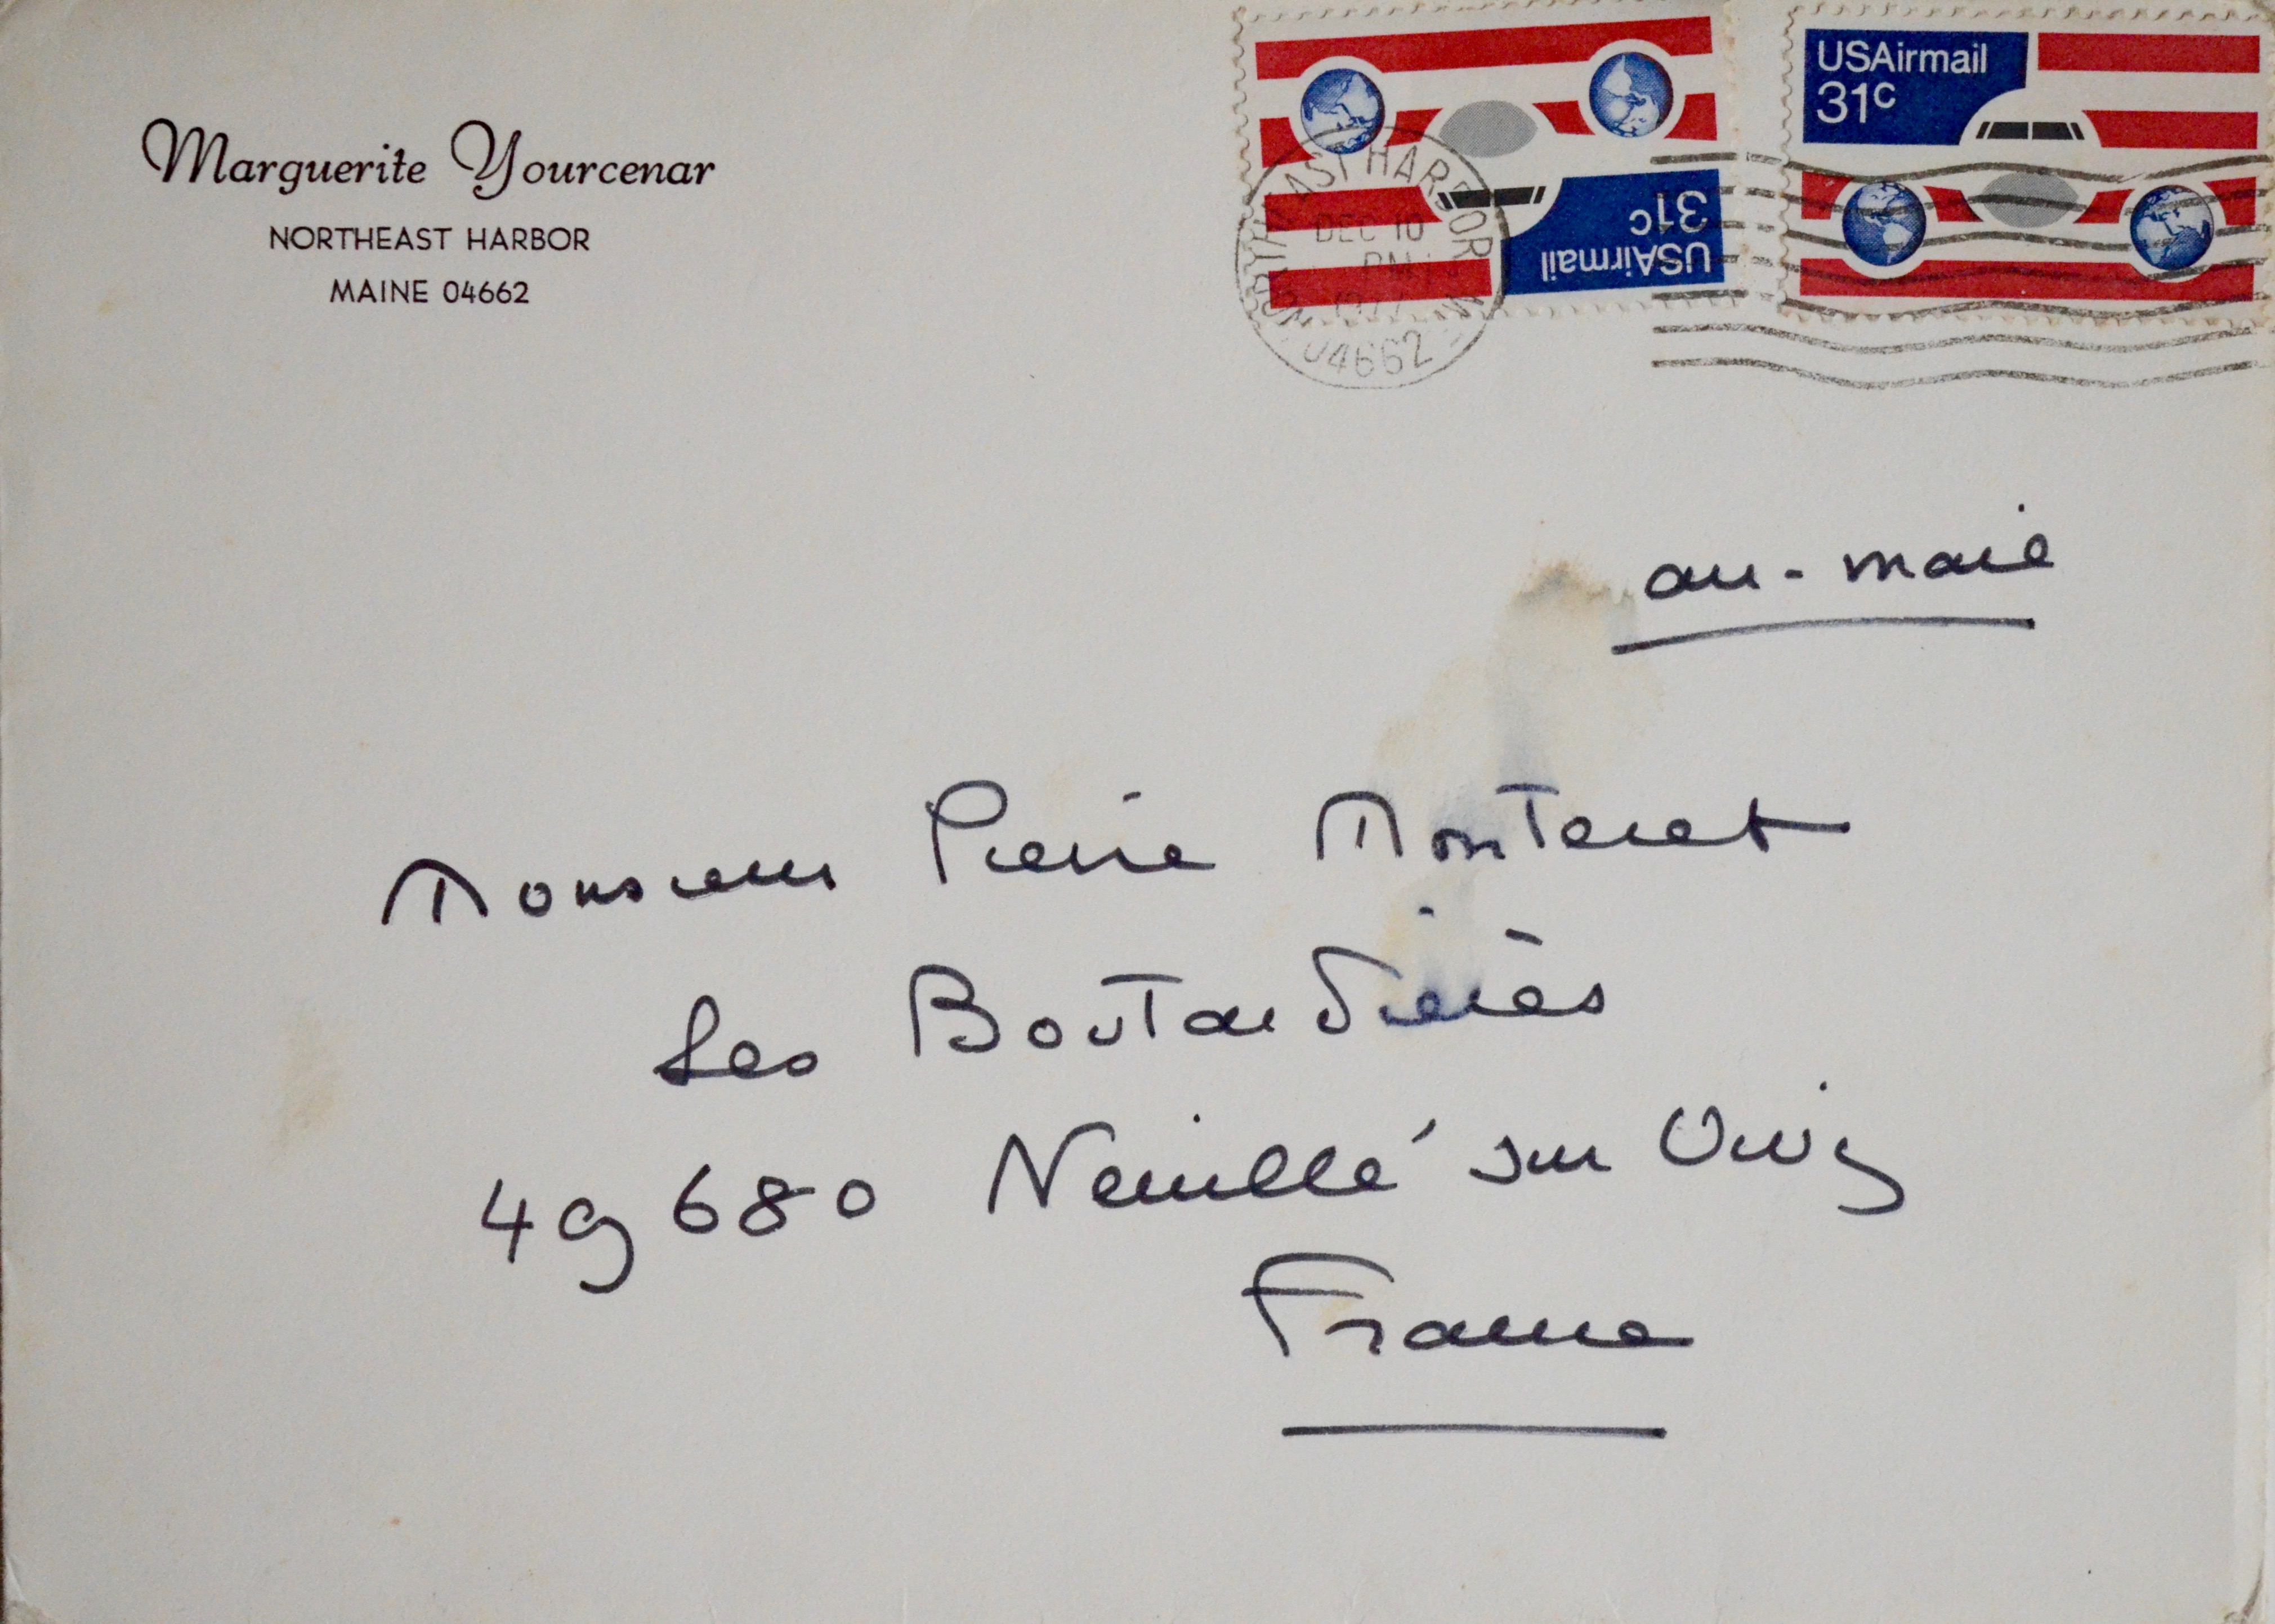 Marguerite Yourcenar
NORTHEAST HARBOR
MAINE 04662
USAirmail
31c
USAirmail
31c
NORTHEAST HARBOR
DEC 10
PM
1977
04662
air-mail
Monsieur Pierre Monteret
Les Boutardières
49680 Neuillé sur Vivy
France